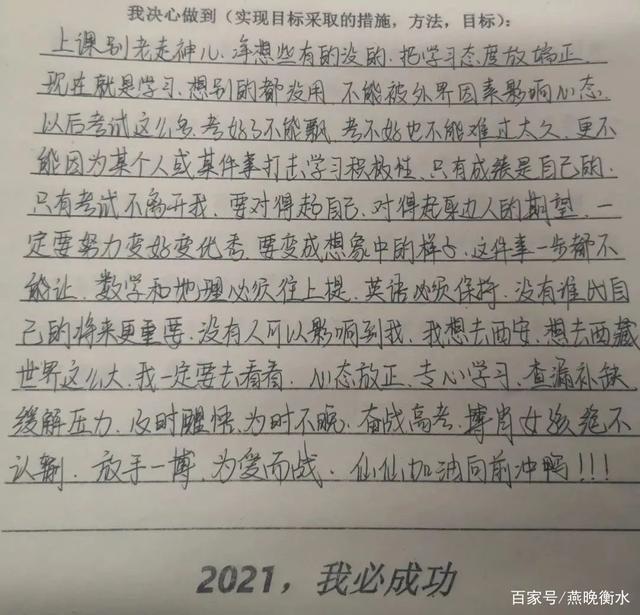 我决心做到（实现目标采取的措施，方法，目标）：
上课别老走神儿、净想些有的没的，把学习态度放端正、
现在就是学习、想别的都没用、不能被外界因素影响心态、
以后考试这么多、考好了不能飘、考不好也不能难过太久、更不
能因为某个人或某件事打击学习积极性、只有成绩是自己的、
只有考试不离开我、要对得起自己、对得起身边人的期望、一
定要努力变好变优秀、要变成想象中的样子、这件事一步都不
能让、数学和地理必须往上提、英语必须保持、没有谁比自
己的将来更重要、没有人可以影响到我、我想去西安、想去西藏
世界这么大、我一定要去看看、心态放正、专心学习、查漏补缺
缓解压力、及时醒悟、为时不晚、奋战高考、搏肖女孩绝不
认输、放手一搏、为爱而战、仙仙加油向前冲鸭！！！
2021，我必成功
百家号/燕晚衡水